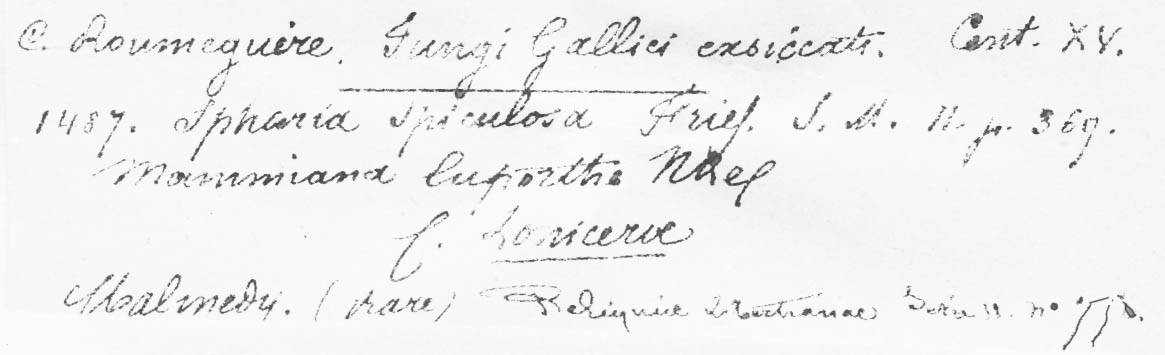 C. Roumeguère. Fungi Gallici exsiccati. Cent. XV.
1487. Sphæria Spiculosa Fries. S. M. II. p. 369.
Mammiana Euporthe
f. Loniceræ
Malmedy. (rare) Reliquiæ Libertianae Serie II. no